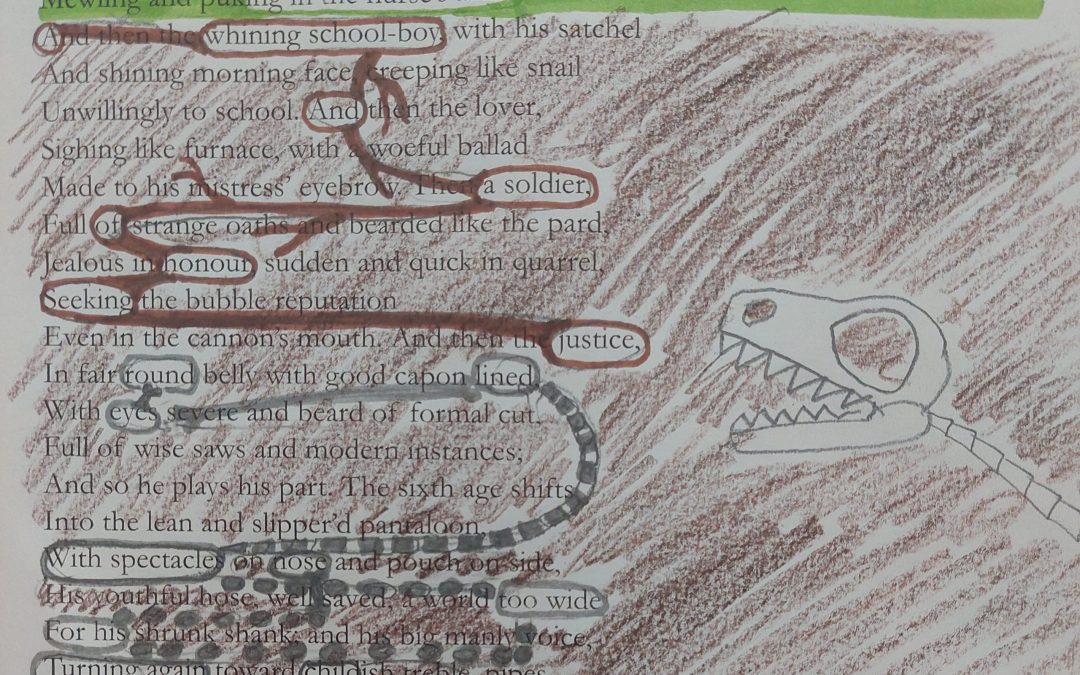 Mewling and puking in the nurse's
And then the whining school-boy, with his satchel
And shining morning face, creeping like snail
Unwillingly to school. And then the lover,
Sighing like furnace, with a woeful ballad
Made to his mistress' eyebrow. Then a soldier,
Full of strange oaths and bearded like the pard,
Jealous in honour, sudden and quick in quarrel,
Seeking the bubble reputation
Even in the cannon's mouth. And then the justice,
In fair round belly with good capon lined,
With eyes severe and beard of formal cut,
Full of wise saws and modern instances;
And so he plays his part. The sixth age shifts
Into the lean and slipper'd pantaloon,
With spectacles on nose and pouch on side,
His youthful hose, well saved, a world too wide
For his shrunk shank; and his big manly voice,
Turning again toward childish treble, pipes